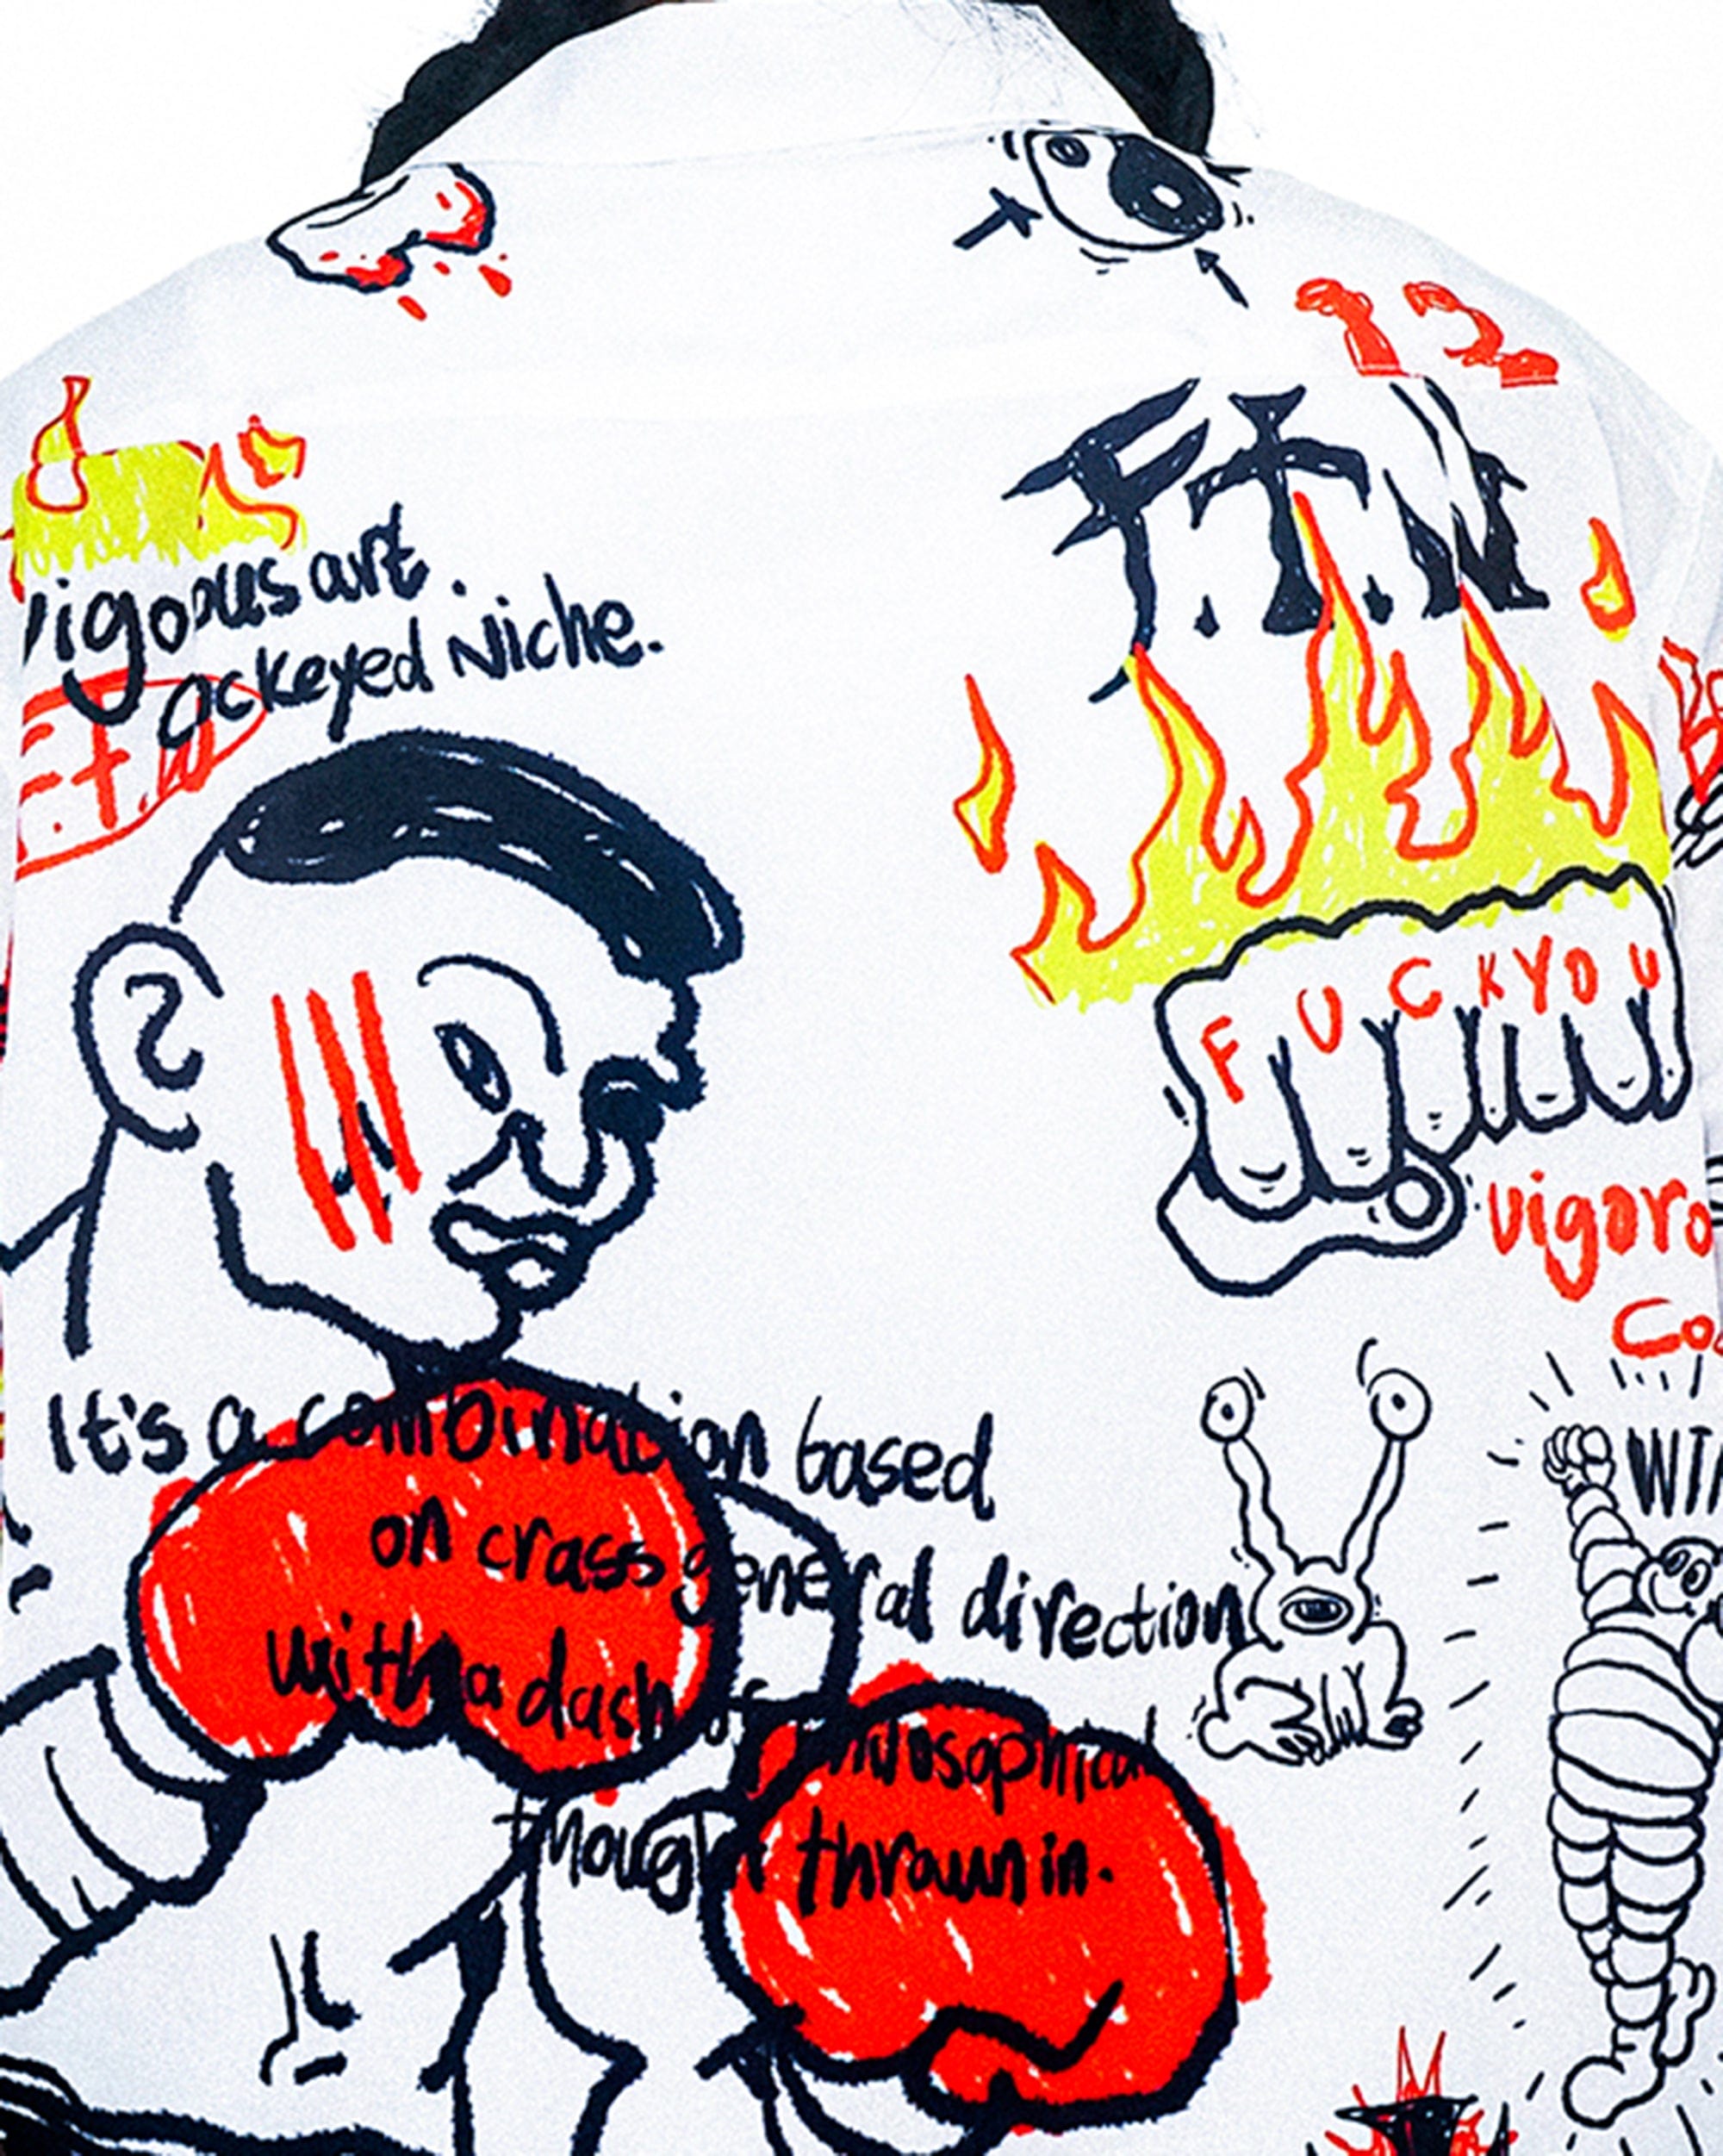 12
F.T.W
vigorous art.
ockeyed Niche.
F.T.W
FUCKYOU
vigoro
Co
It's a combination based
on crass general direction
with a dash of philosophical
thought thrown in.
WI